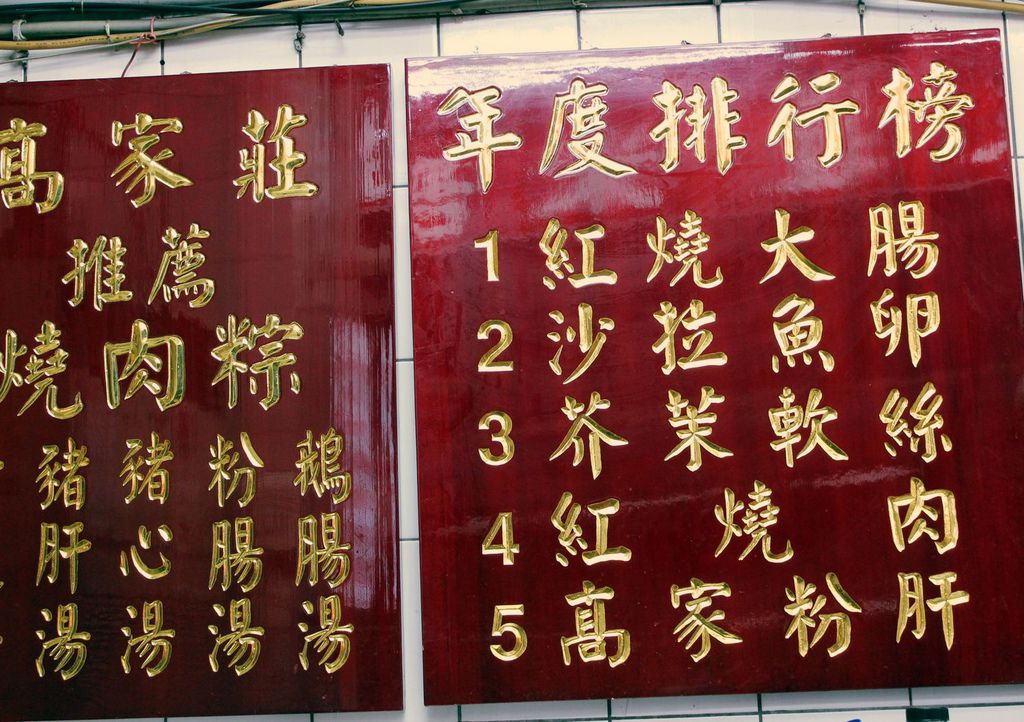 髙家莊
推薦
燒肉粽
豬肝湯
豬心湯
粉腸湯
鵝腸湯
年度排行榜
1 紅燒大腸
2 沙拉魚卵
3 芥茉軟絲
4 紅燒肉
5 髙家粉肝